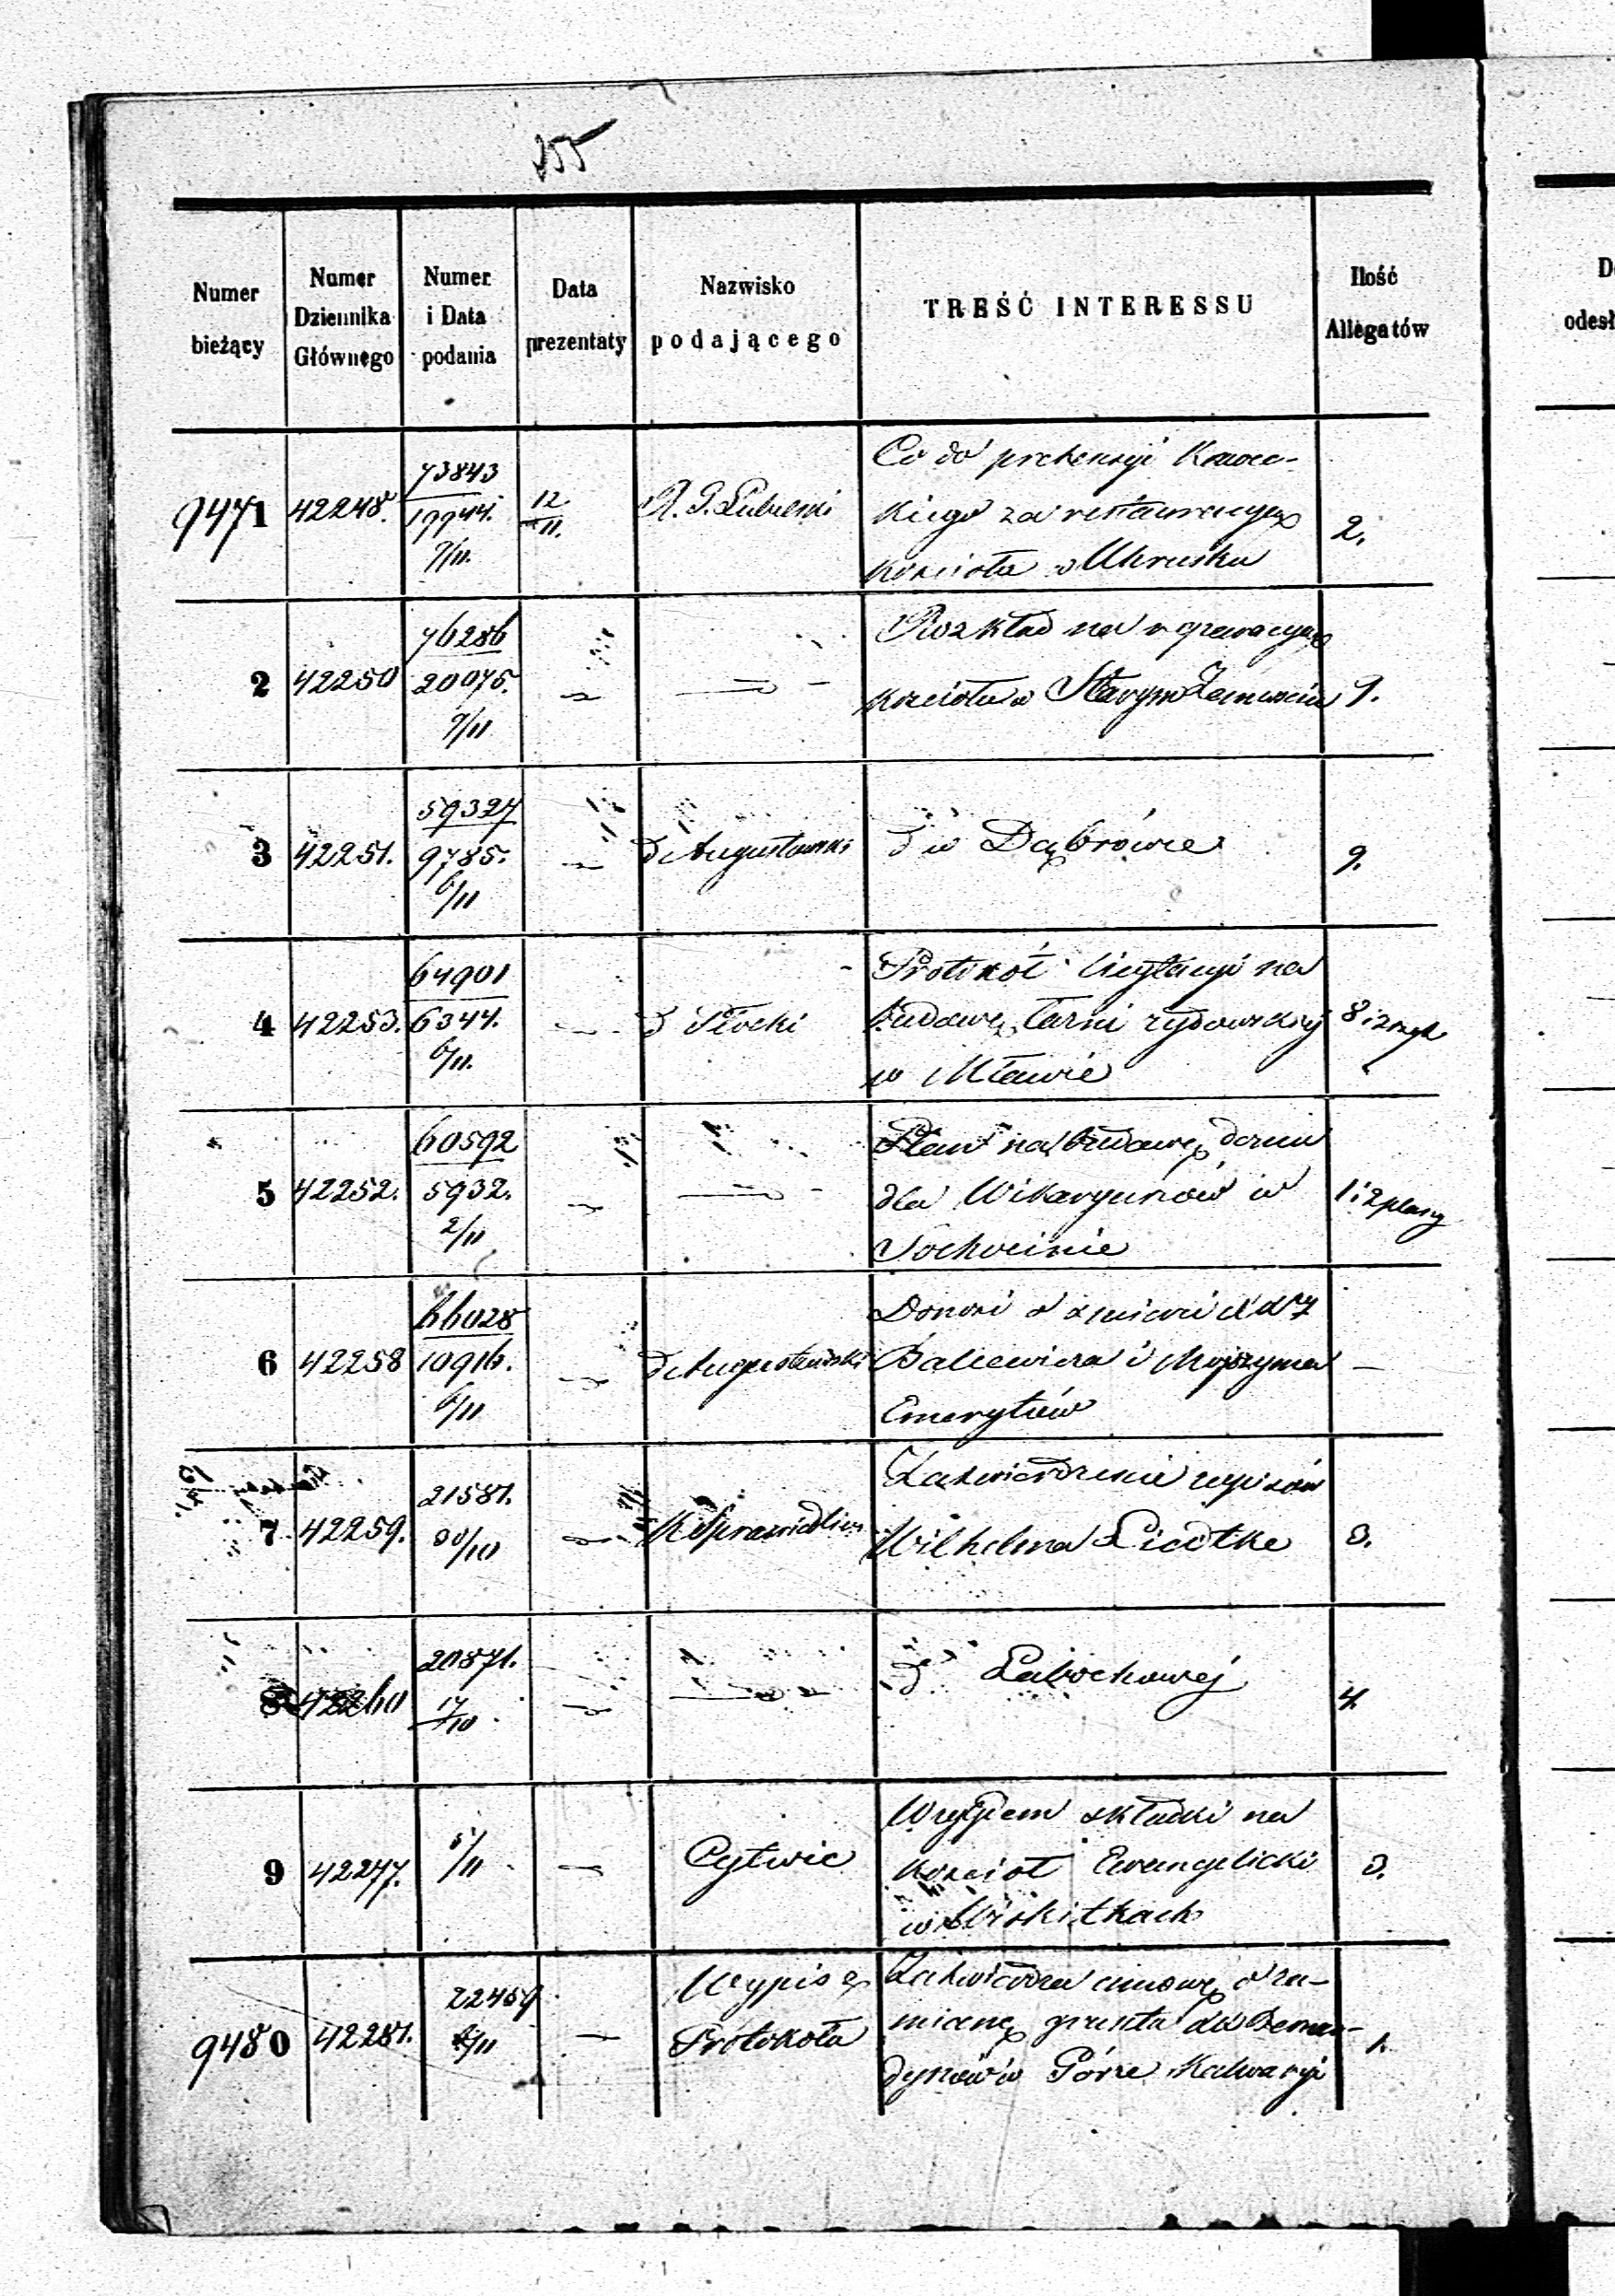 255
Numer bieżący
Numer Dziennika Głównego
Numer i Data podania
Data prezentaty
Nazwisko podającego
TREŚĆ INTERESSU
Ilość Allegatów
9471 42248. 73843 19944. 9/11. 12/11. R. G. Lubelski
Co do pretensyi Kowec-
kiego za restauracyę
kościoła w Uhrusku
2.
2 42250 76286 20075. 9/11
Rozkład na reperacyę
kościoła w Starym Zamościu
1.
3 42251. 59327 9785. 6/11 d Augustowski
d w Dąbrowie
9.
4 42253. 64901 6344. 6/11. d Płocki
Protokół licytacyi na
budowę łaźni żydowskiej
w Mławie
8 i
5 42252. 60592 5932. 2/11
Plan na budowę domu
dla Wikaryuszów w
Sochocinie
1 i 2 plany
6 42258 66028 10916. 6/11 d Augustowski
Donosi o śmierci XX
Balcewicza i
Emerytów
—
7 42259. 21581. 30/10 K Sprawiedliw.
Zatwierdzenie zapisów
Wilhelma Liedtke
3.
8 42260 20871. 17/10
d
4
9 42277. 5/11 Cytwic
Względem składki na
kościoł Ewangelicki
w Wiskitkach
3.
9480 42281. 22459 /11 Wypis z Protokołu
Zatwierdza umowę o za-
mianę gruntu XX Bernar-
dynów w Górze Kalwaryi
1.
D
odesł